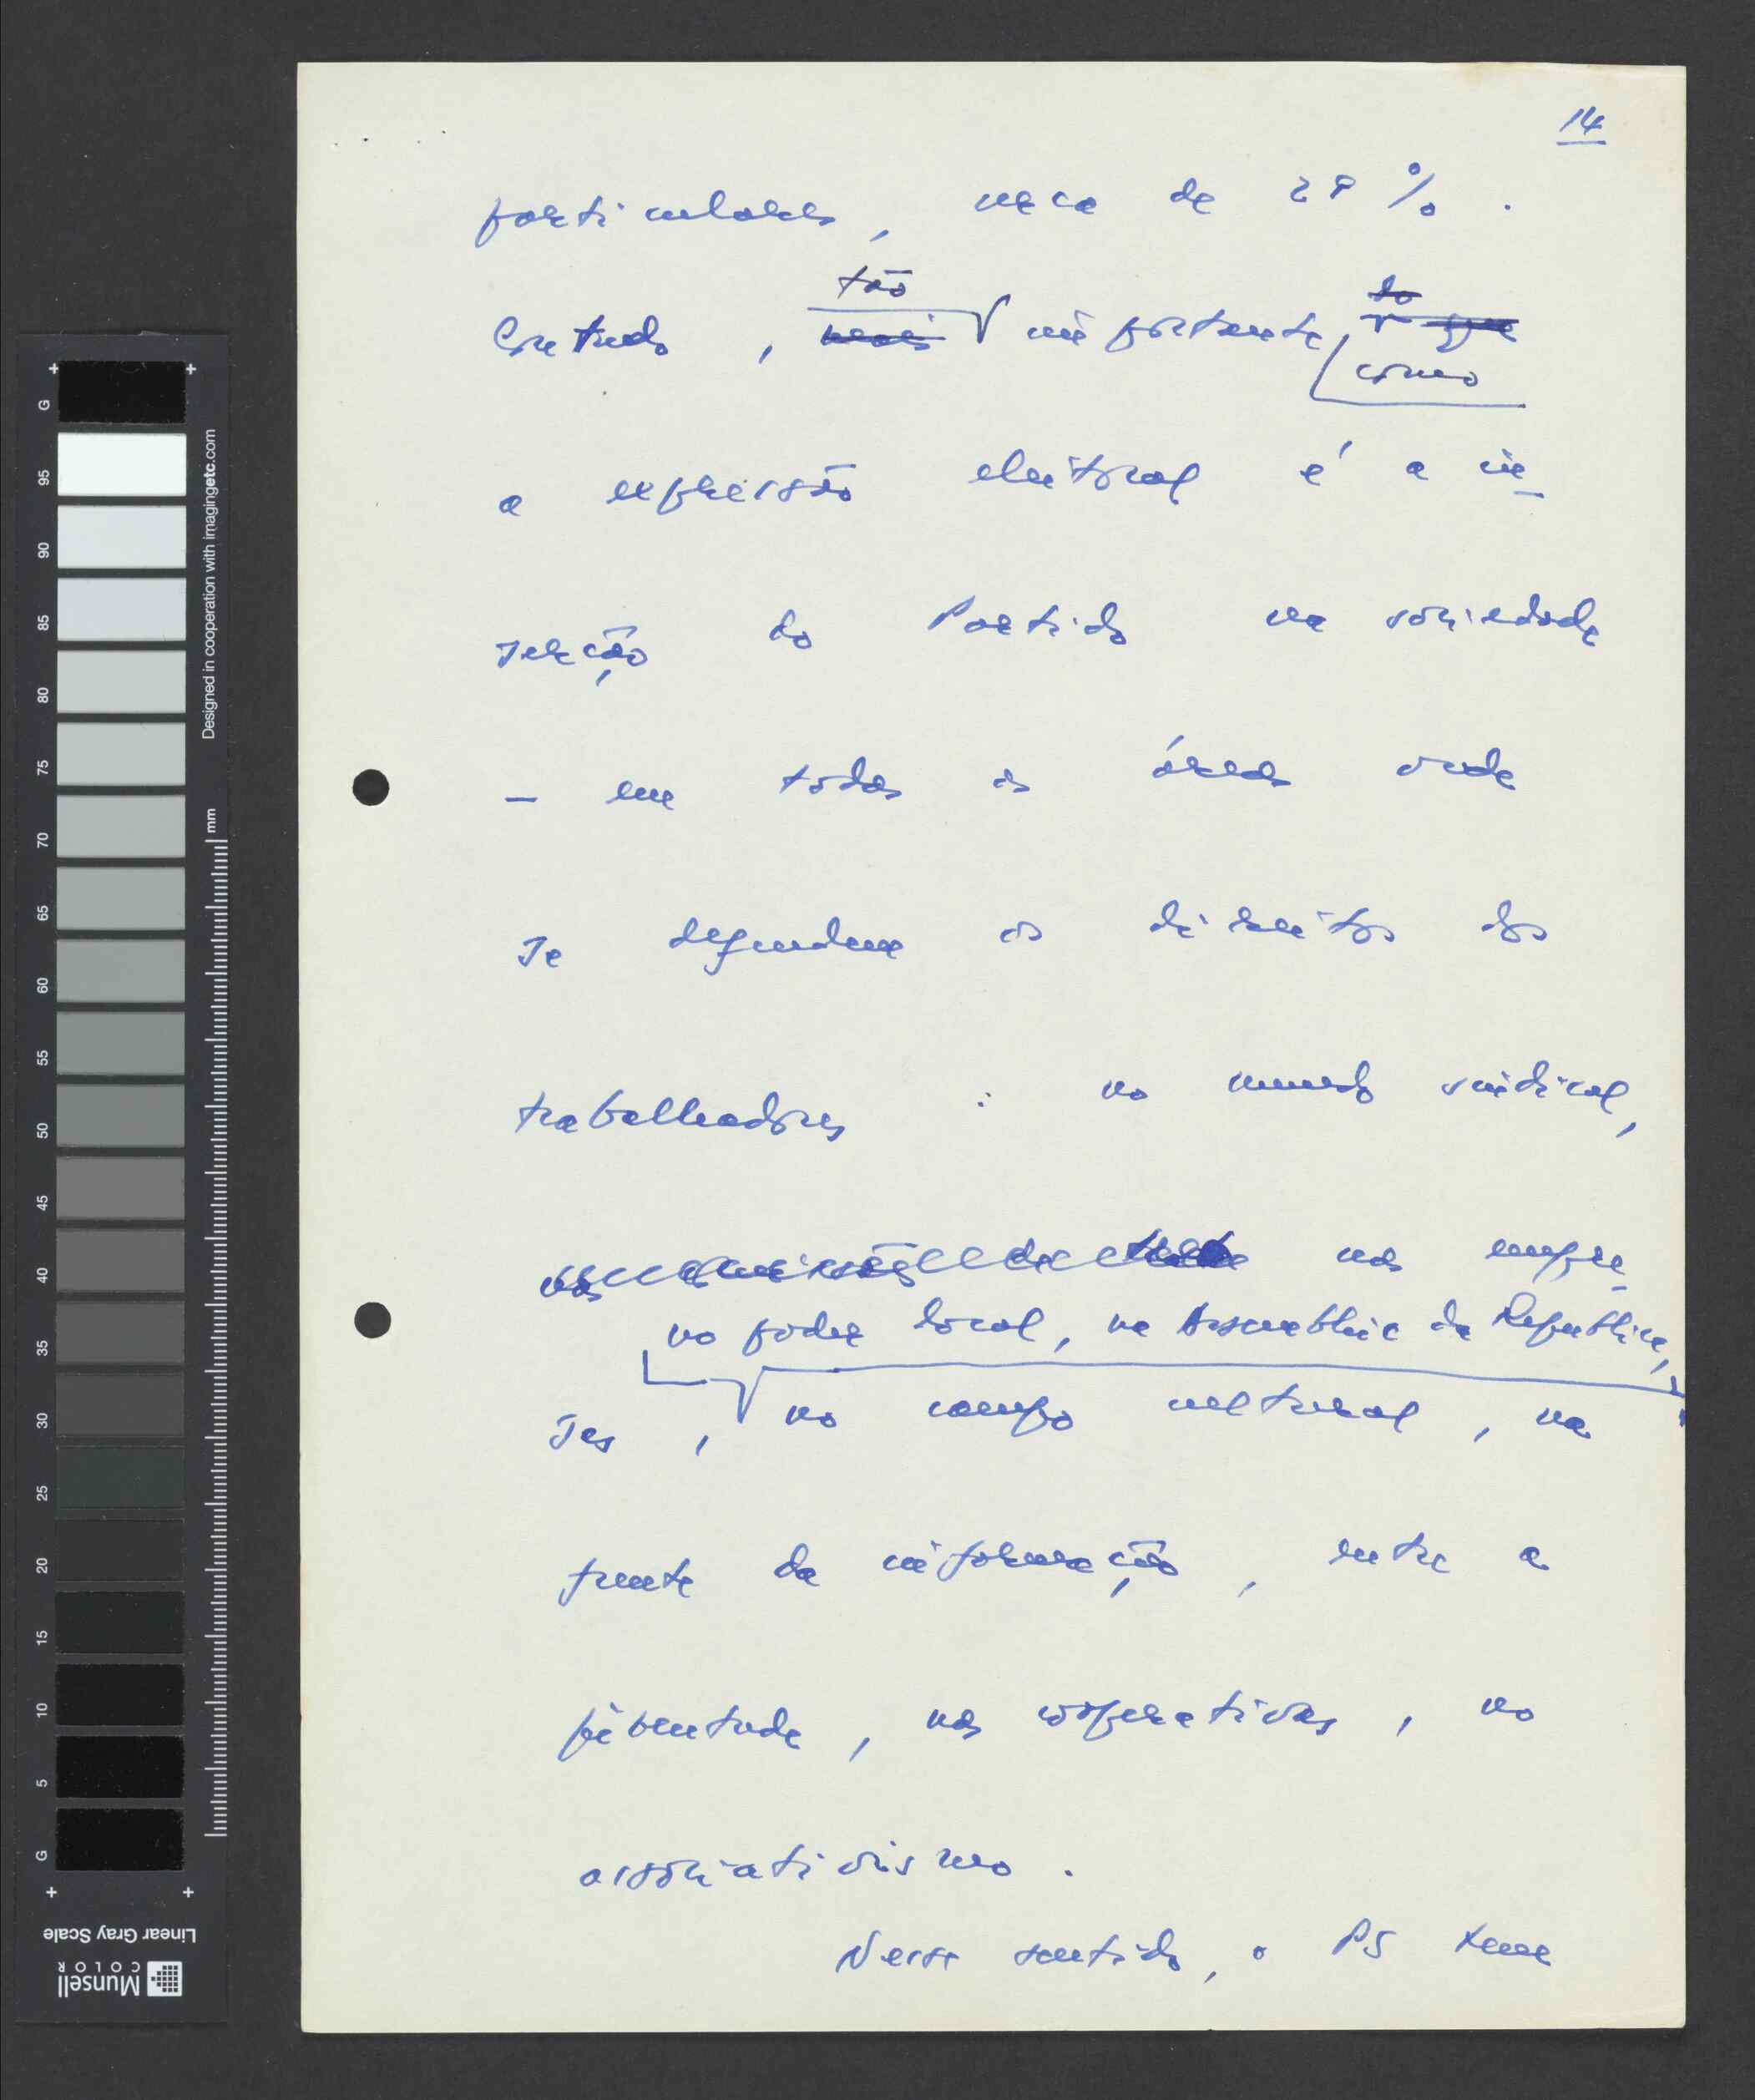 14
particulares, cerca de 28 %.
tão do
Contudo, mais importante que
como
a expressão eleitoral é a in-
serção do Partido na sociedade
- em todas as áreas onde
se defendem os direitos dos
trabalhadores : no mundo sindical,
nas empre-
no poder local, na Assembleia da República,
sas, no campo cultural, na
frente da informação, entre a
juventude, nas cooperativas, no
associativismo.
Nesse sentido, o PS tem
G
95
90
85
80
75
70
65
60
55
50
45
40
35
30
25
20
15
10
5
G
Designed in cooperation with imagingetc.com
mm
Linear Gray Scale
Munsell
COLOR